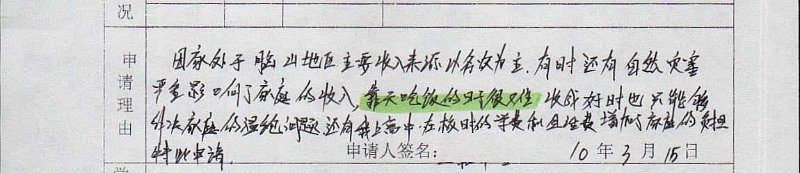 况
申请理由
因家处于脑山地区主要收入来源以务农为主,有时还有自然灾害
严重影响了家庭的收入,靠天吃饭的日子很难 收成好时也只能够
解决家庭的温饱问题还有我上高中在校时的学费和生活费增加了家庭的负担
特此申请.
申请人签名: 10 年 3 月 15 日
学